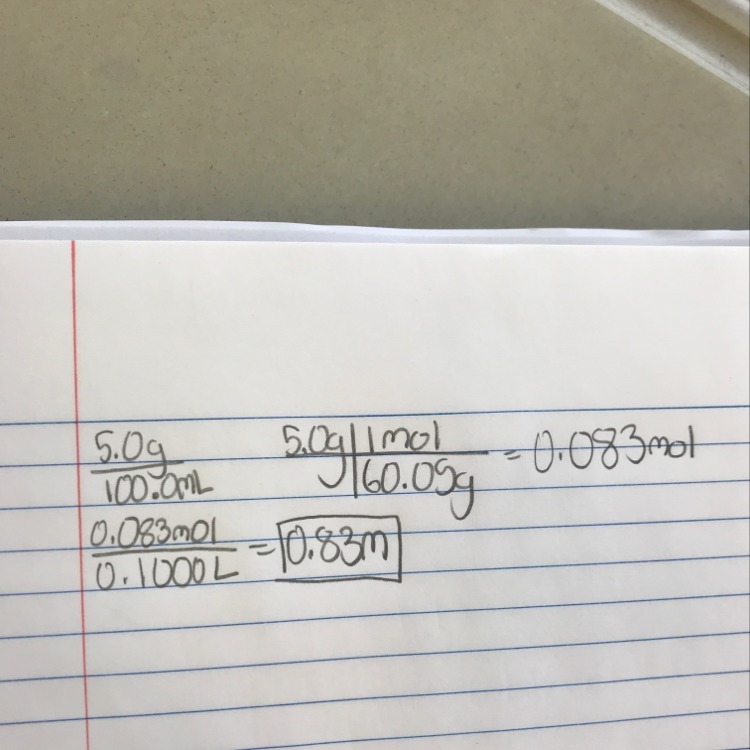 5.0g / 100.0mL    5.0g | 1mol / 60.05g = 0.083mol
0.083mol / 0.1000L = 0.83m